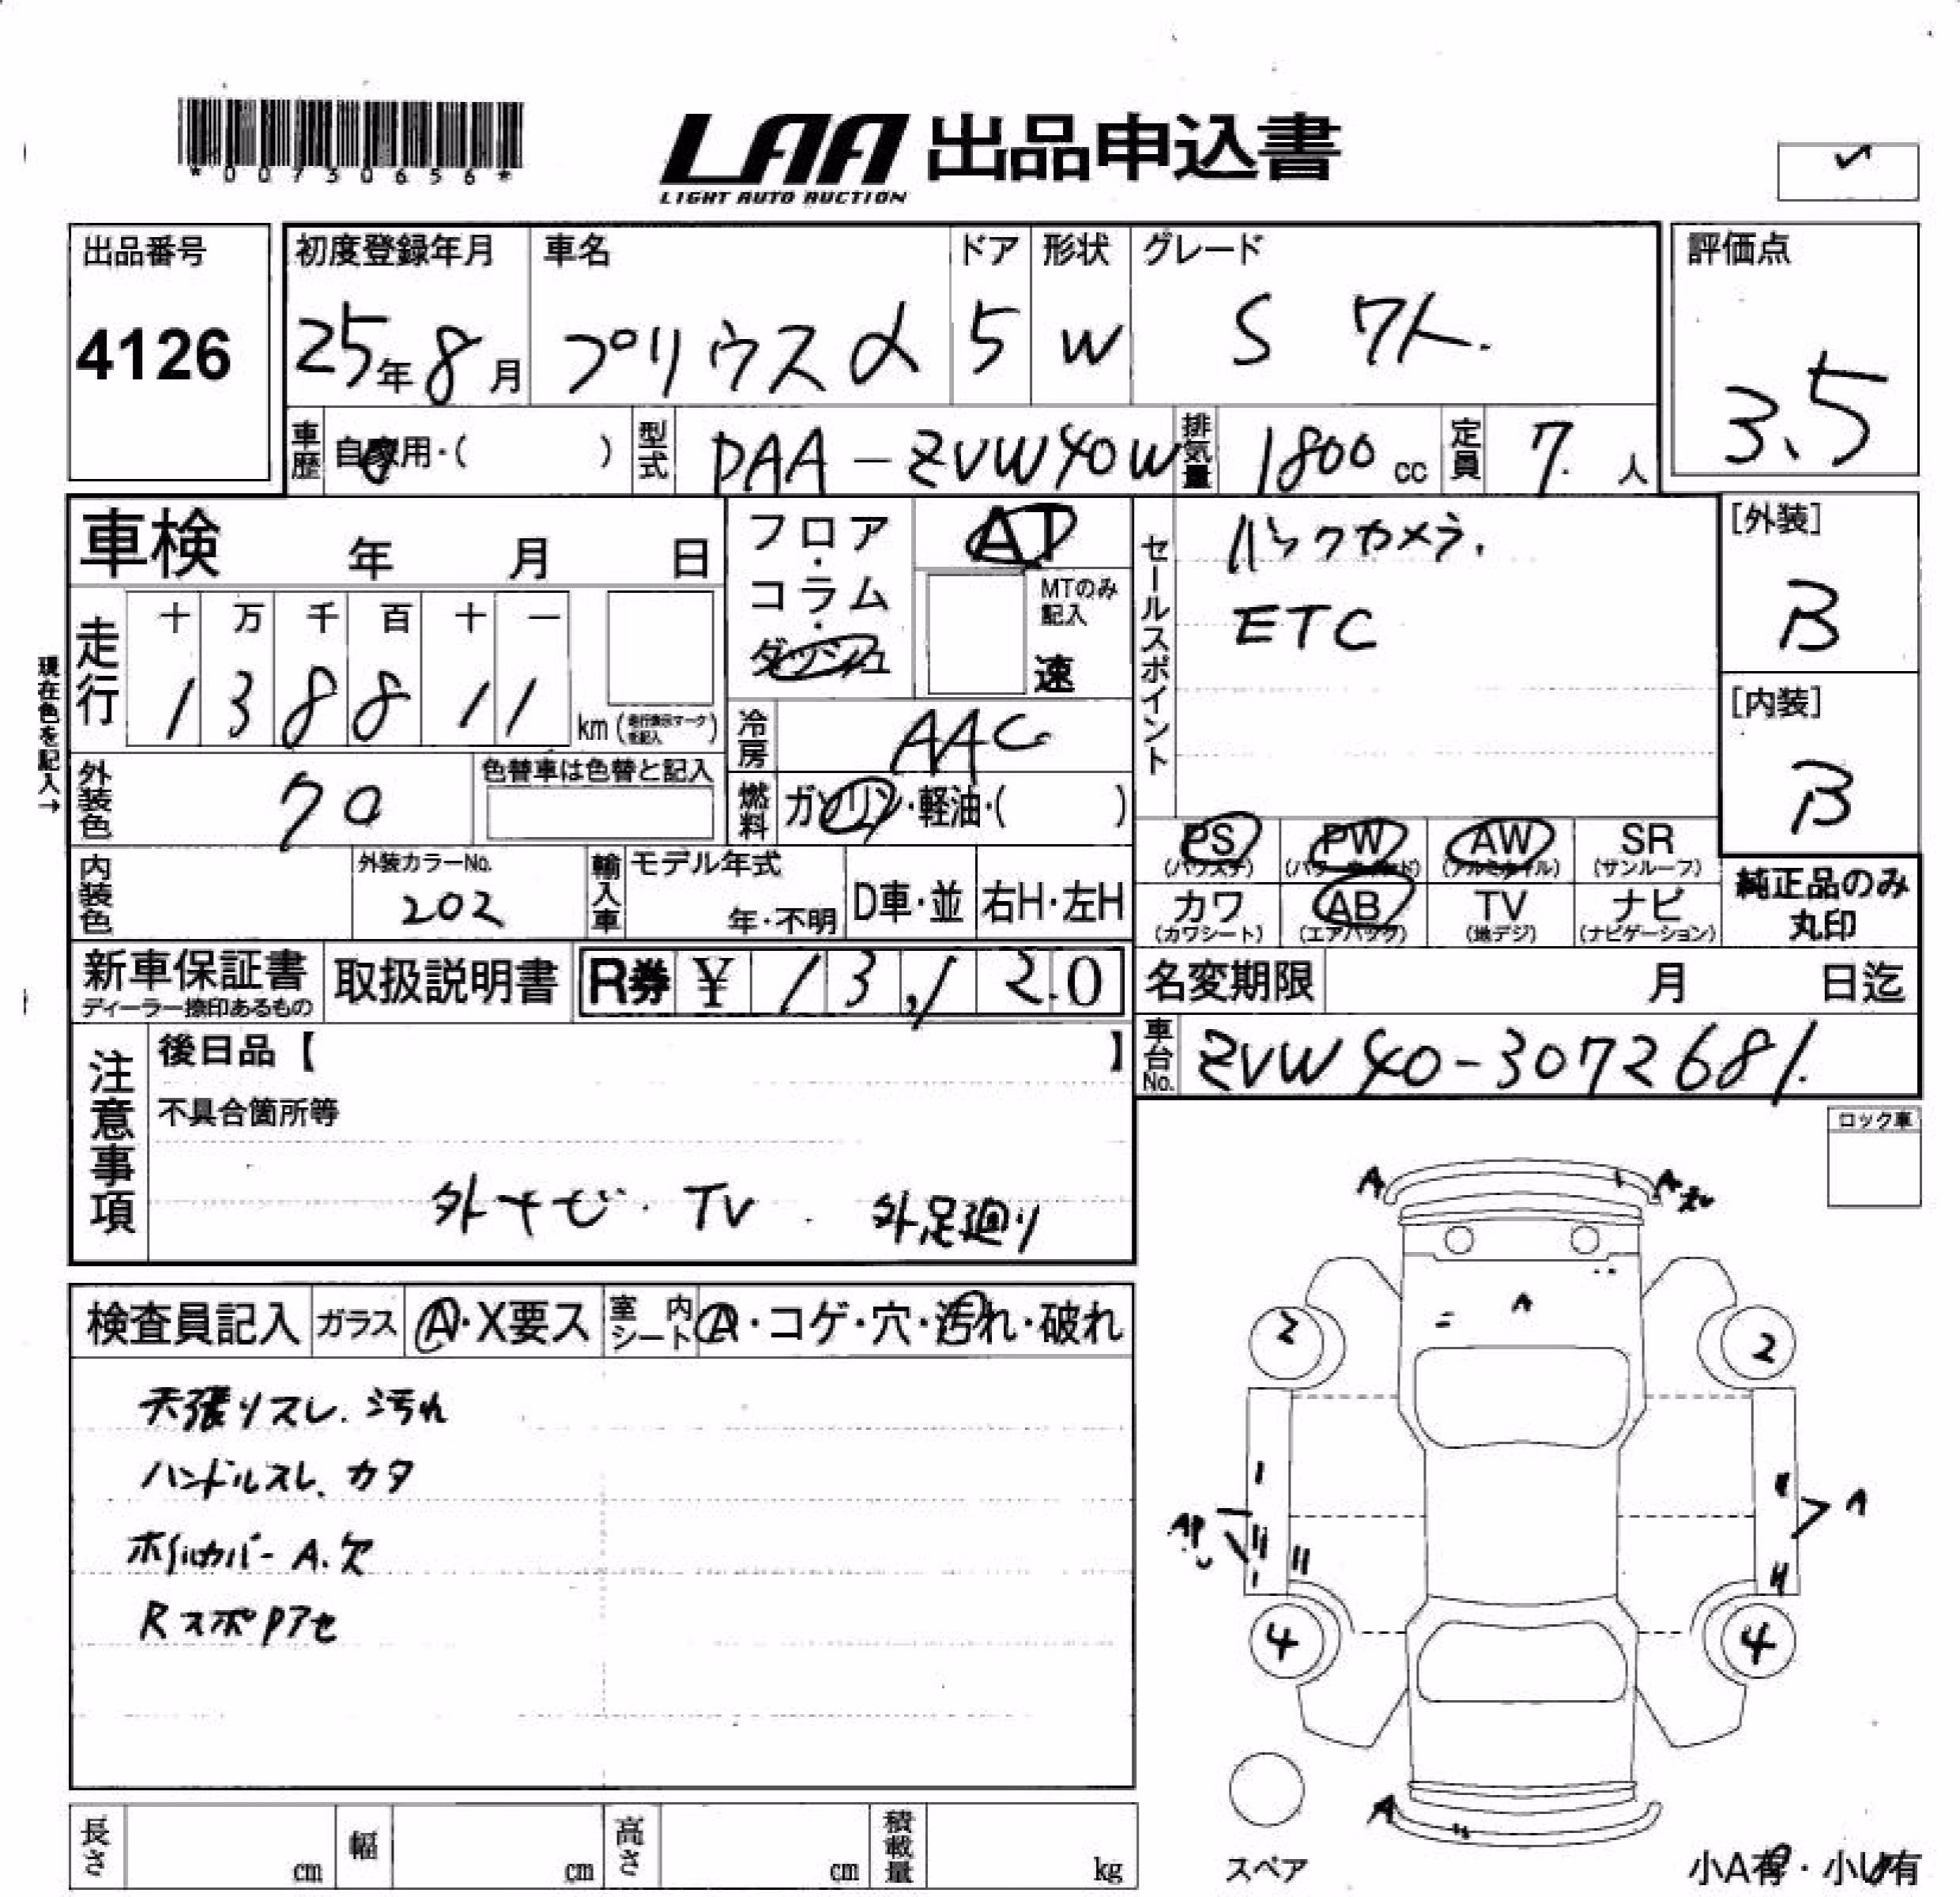 *00730656*
LAA 出品申込書
LIGHT AUTO AUCTION
出品番号 初度登録年月 車名 ドア 形状 グレード 評価点
4126 25年8月 プリウスα 5 W S ワト. 3.5
車歴 自家用・( ) 型式 DAA-ZVW40W 排気量 1800cc 定員 7人
車検 年 月 日 フロア・コラム・ダッシュ AT セールスポイント バックカメラ. [外装]
MTのみ記入 速 ETC B
現在色を記入→
走行 十 万 千 百 十 一
1 3 8 8 1 1 km(走行表示マークを記入) [内装]
冷房 AAC B
外装色 クロ 色替車は色替と記入 燃料 ガソリン・軽油・( )
PS(パワステ) PW(パワーウィンド) AW(アルミホイル) SR(サンルーフ)
内装色 外装カラーNo. 202 輸入車 モデル年式 年・不明 D車・並 右H・左H
カワ(カワシート) AB(エアバッグ) TV(地デジ) ナビ(ナビゲーション) 純正品のみ丸印
新車保証書 取扱説明書 R券 ¥ 13,120 名変期限 月 日迄
ディーラー捺印あるもの
注意事項 後日品【 】 車台No. ZVW40-3072681.
不具合箇所等 ロック車
外ナビ. TV. 外足廻り
A A
A
2 2
検査員記入 ガラス A・X要ス 室内シート A・コゲ・穴・汚れ・破れ
天張リスレ. 汚れ
ハンドルスレ. カタ
AP A
ホイルカバー A.欠
RスポPアセ
4 4
A
長さ cm 幅 cm 高さ cm 積載量 kg
スペア 小A有・小U有